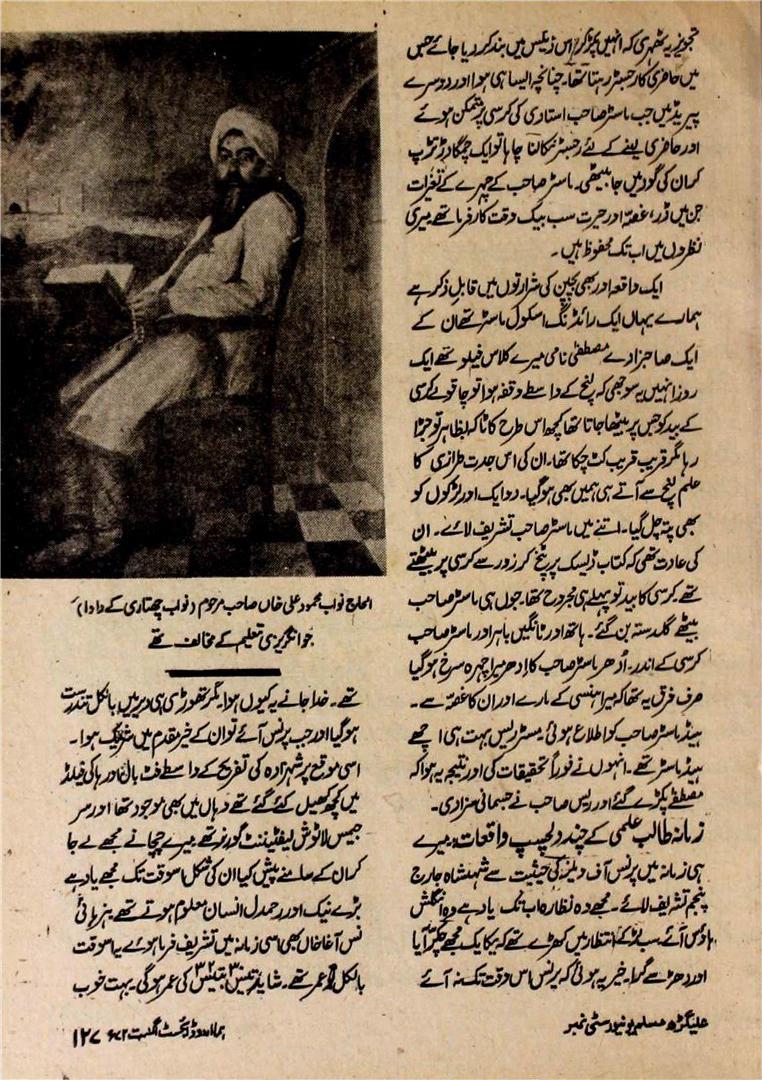 تجویز یہ ٹھہری کہ انہیں پکڑ کر اس ڈیکس میں بند کر دیا جائے جس
میں حاضری کا رجسٹر رہتا تھا۔ چنانچہ ایسا ہی ہوا اور دوسرے
پیریڈ میں جب ماسٹر صاحب استادی کی کرسی پر متمکن ہوئے
اور حاضری لینے کے لئے رجسٹر نکالنا چاہا تو ایک چمگادڑ تڑپ
کر ان کی گود میں جا بیٹھی۔ ماسٹر صاحب کے چہرے کے تغیرات
جن میں ڈر، غصہ اور حیرت سب بیک وقت کارفرما تھے میری
نظروں میں اب تک محفوظ ہیں۔
ایک واقعہ اور بھی بچپن کی شرارتوں میں قابل ذکر ہے
ہمارے یہاں ایک رائڈنگ اسکول ماسٹر تھے ان کے
ایک صاحبزادے مصطفیٰ نامی میرے کلاس فیلو تھے ایک
روز انہیں یہ سوجھی کہ لنچ کے واسطے وقفہ ہوا تو چاقو سے کرسی
کے بید کو جس پر بیٹھا جاتا تھا کچھ اس طرح کاٹا کہ بظاہر تو جڑا
رہا مگر قریب قریب کٹ چکا تھا۔ ان کی اس جدت طرازی کا
علم لنچ سے آتے ہی ہمیں بھی ہو گیا۔ دو ایک اور لڑکوں کو
بھی پتہ چل گیا۔ اتنے میں ماسٹر صاحب تشریف لائے۔ ان
کی عادت تھی کہ کتاب ڈیسک پر پٹخ کر زور سے کرسی پر بیٹھتے
تھے کرسی کا بید تو پہلے ہی مجروح تھا۔ جوں ہی ماسٹر صاحب
بیٹھے گلدستہ بن گئے۔ ہاتھ اور ٹانگیں باہر اور ماسٹر صاحب
کرسی کے اندر۔ اُدھر ماسٹر صاحب کا اِدھر میرا چہرہ سرخ ہو گیا
صرف فرق یہ تھا کہ میرا ہنسی کے مارے اور ان کا غصہ سے۔
ہیڈ ماسٹر صاحب کو اطلاع ہوئی۔ مسٹر ریس بہت ہی اچھے
ہیڈ ماسٹر تھے۔ انہوں نے فوراً تحقیقات کی اور نتیجہ یہ ہوا کہ
مصطفےٰ پکڑے گئے اور ریس صاحب نے جسمانی سزا دی۔
زمانہ طالب علمی کے چند دلچسپ واقعات: میرے
ہی زمانہ میں پرنس آف ویلز کی حیثیت سے شہنشاہ جارج
پنجم تشریف لائے۔ مجھے وہ نظارہ اب تک یاد ہے وہ انگلش
ہاؤس آئے۔ سب لڑکے انتظار میں کھڑے تھے کہ یکایک مجھے چکر آیا
اور دھڑ سے گرا۔ خیر یہ ہوئی کہ پرنس اس وقت تک نہ آئے
الحاج نواب محمود علی خاں صاحب مرحوم (نواب چھتاری کے دادا)
جو انگریزی تعلیم کے مخالف تھے
تھے۔ خدا جانے یہ کیوں ہوا مگر تھوڑی ہی دیر میں بالکل تندرست
ہو گیا اور جب پرنس آئے تو ان کے خیر مقدم میں شریک ہوا۔
اسی موقع پر شہزادہ کی تفریح کے واسطے فٹ بال اور ہاکی فیلڈ
میں کچھ کھیل کئے گئے تھے وہاں میں بھی موجود تھا اور سر
جیمس لاٹوش لیفٹیننٹ گورنر تھے میرے چچا نے مجھے لے جا
کر ان کے سامنے پیش کیا ان کی شکل اس وقت تک مجھے یاد ہے
بڑے نیک اور رحمدل انسان معلوم ہوتے تھے۔ ہزہائی
نس آغا خاں بھی اسی زمانہ میں تشریف فرما ہوئے یہ اس وقت
بالکل نو عمر تھے۔ شاید تیس ۳۰ بتیس ۳۲ کی عمر ہو گی۔ بہت خوب
علیگڑھ مسلم یونیورسٹی نمبر
ہما اردو ڈائجسٹ اگست ۷۲ء
۱۲۷